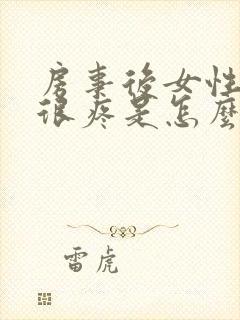 房事後女性
很疼是怎麼
雷虎